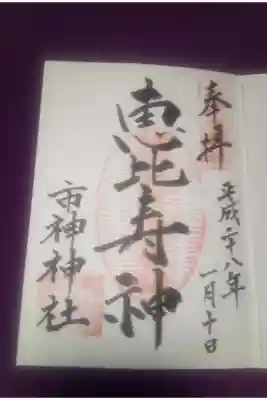 奉拝
平成二十八年
一月十日
恵比寿神
市神神社